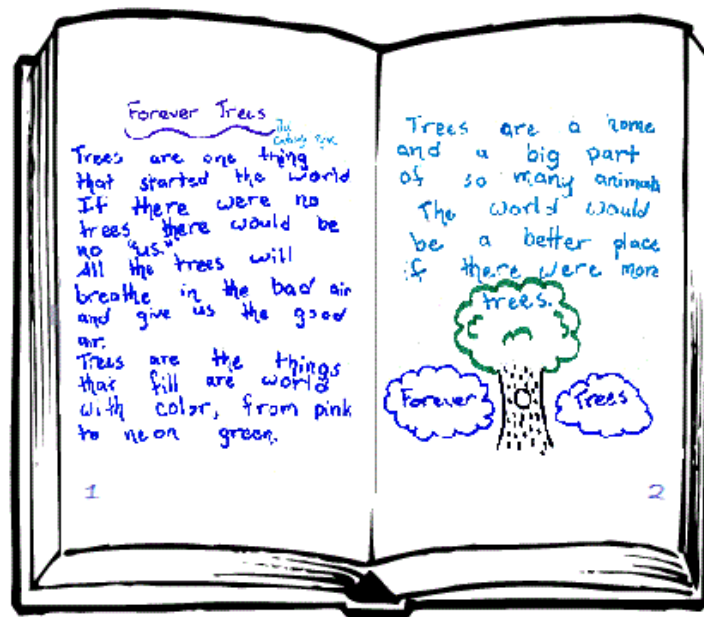 Forever Trees
Trees are one thing
that started the world
If there were no
trees there would be
no "us."
All the trees will
breathe in the bad air
and give us the good
air.
Trees are the things
that fill are world
with color, from pink
to neon green.
1
Trees are a home
and a big part
of so many animals
The world would
be a better place
if there were more
trees.
Forever
Trees
2